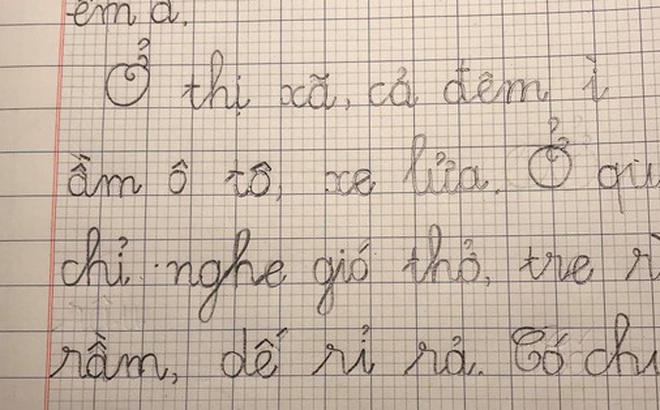 êm ả.
Ở thị xã, cả đêm ì
ầm ô tô, xe lửa. Ở qu
chỉ nghe gió thở, tre r
rầm, dế rỉ rả. Có ch